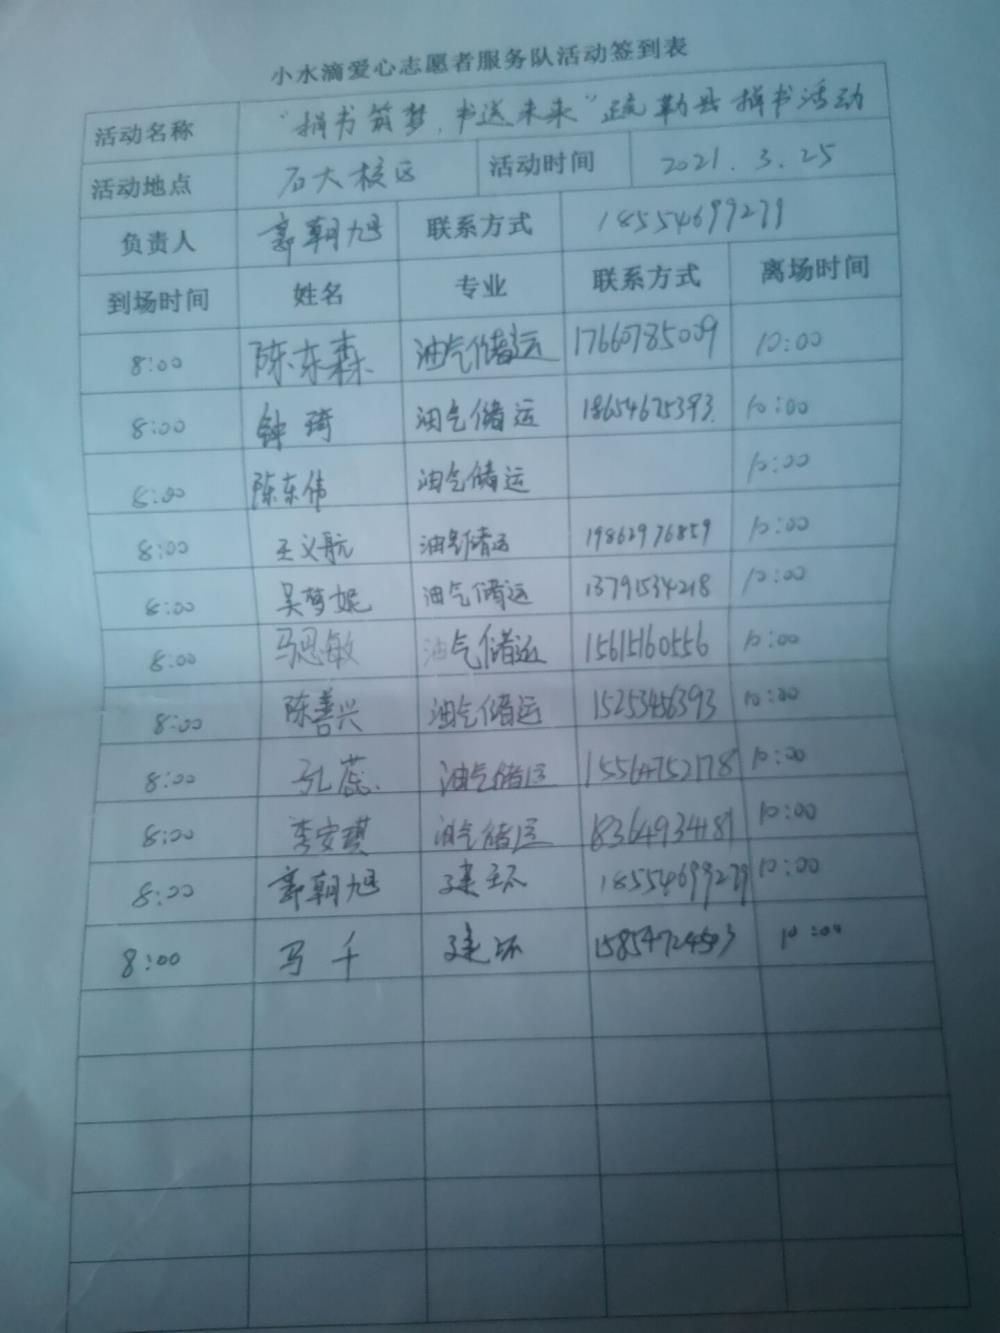 小水滴爱心志愿者服务队活动签到表
活动名称 “捐书筑梦，书送未来”疏勒县捐书活动
活动地点 石大校区 活动时间 2021.3.25
负责人 郭朝旭 联系方式 18554699279
到场时间 姓名 专业 联系方式 离场时间
8:00 陈东森 油气储运 17660785009 10:00
8:00 钟琦 油气储运 18654675393. 10:00
8:00 陈东伟 油气储运 10:00
8:00 王义航 油气储运 19862976859 10:00
8:00 吴梦妮 油气储运 13791534218 10:00
8:00 马思敏 油气储运 15615160556 10:00
8:00 陈善兴 油气储运 15253456393 10:00
8:00 孔蕊. 油气储运 15564752178 10:00
8:00 李安琪 油气储运 18364934181 10:00
8:00 郭朝旭 建环 18554699279 10:00
8:00 马千 建环 10:00